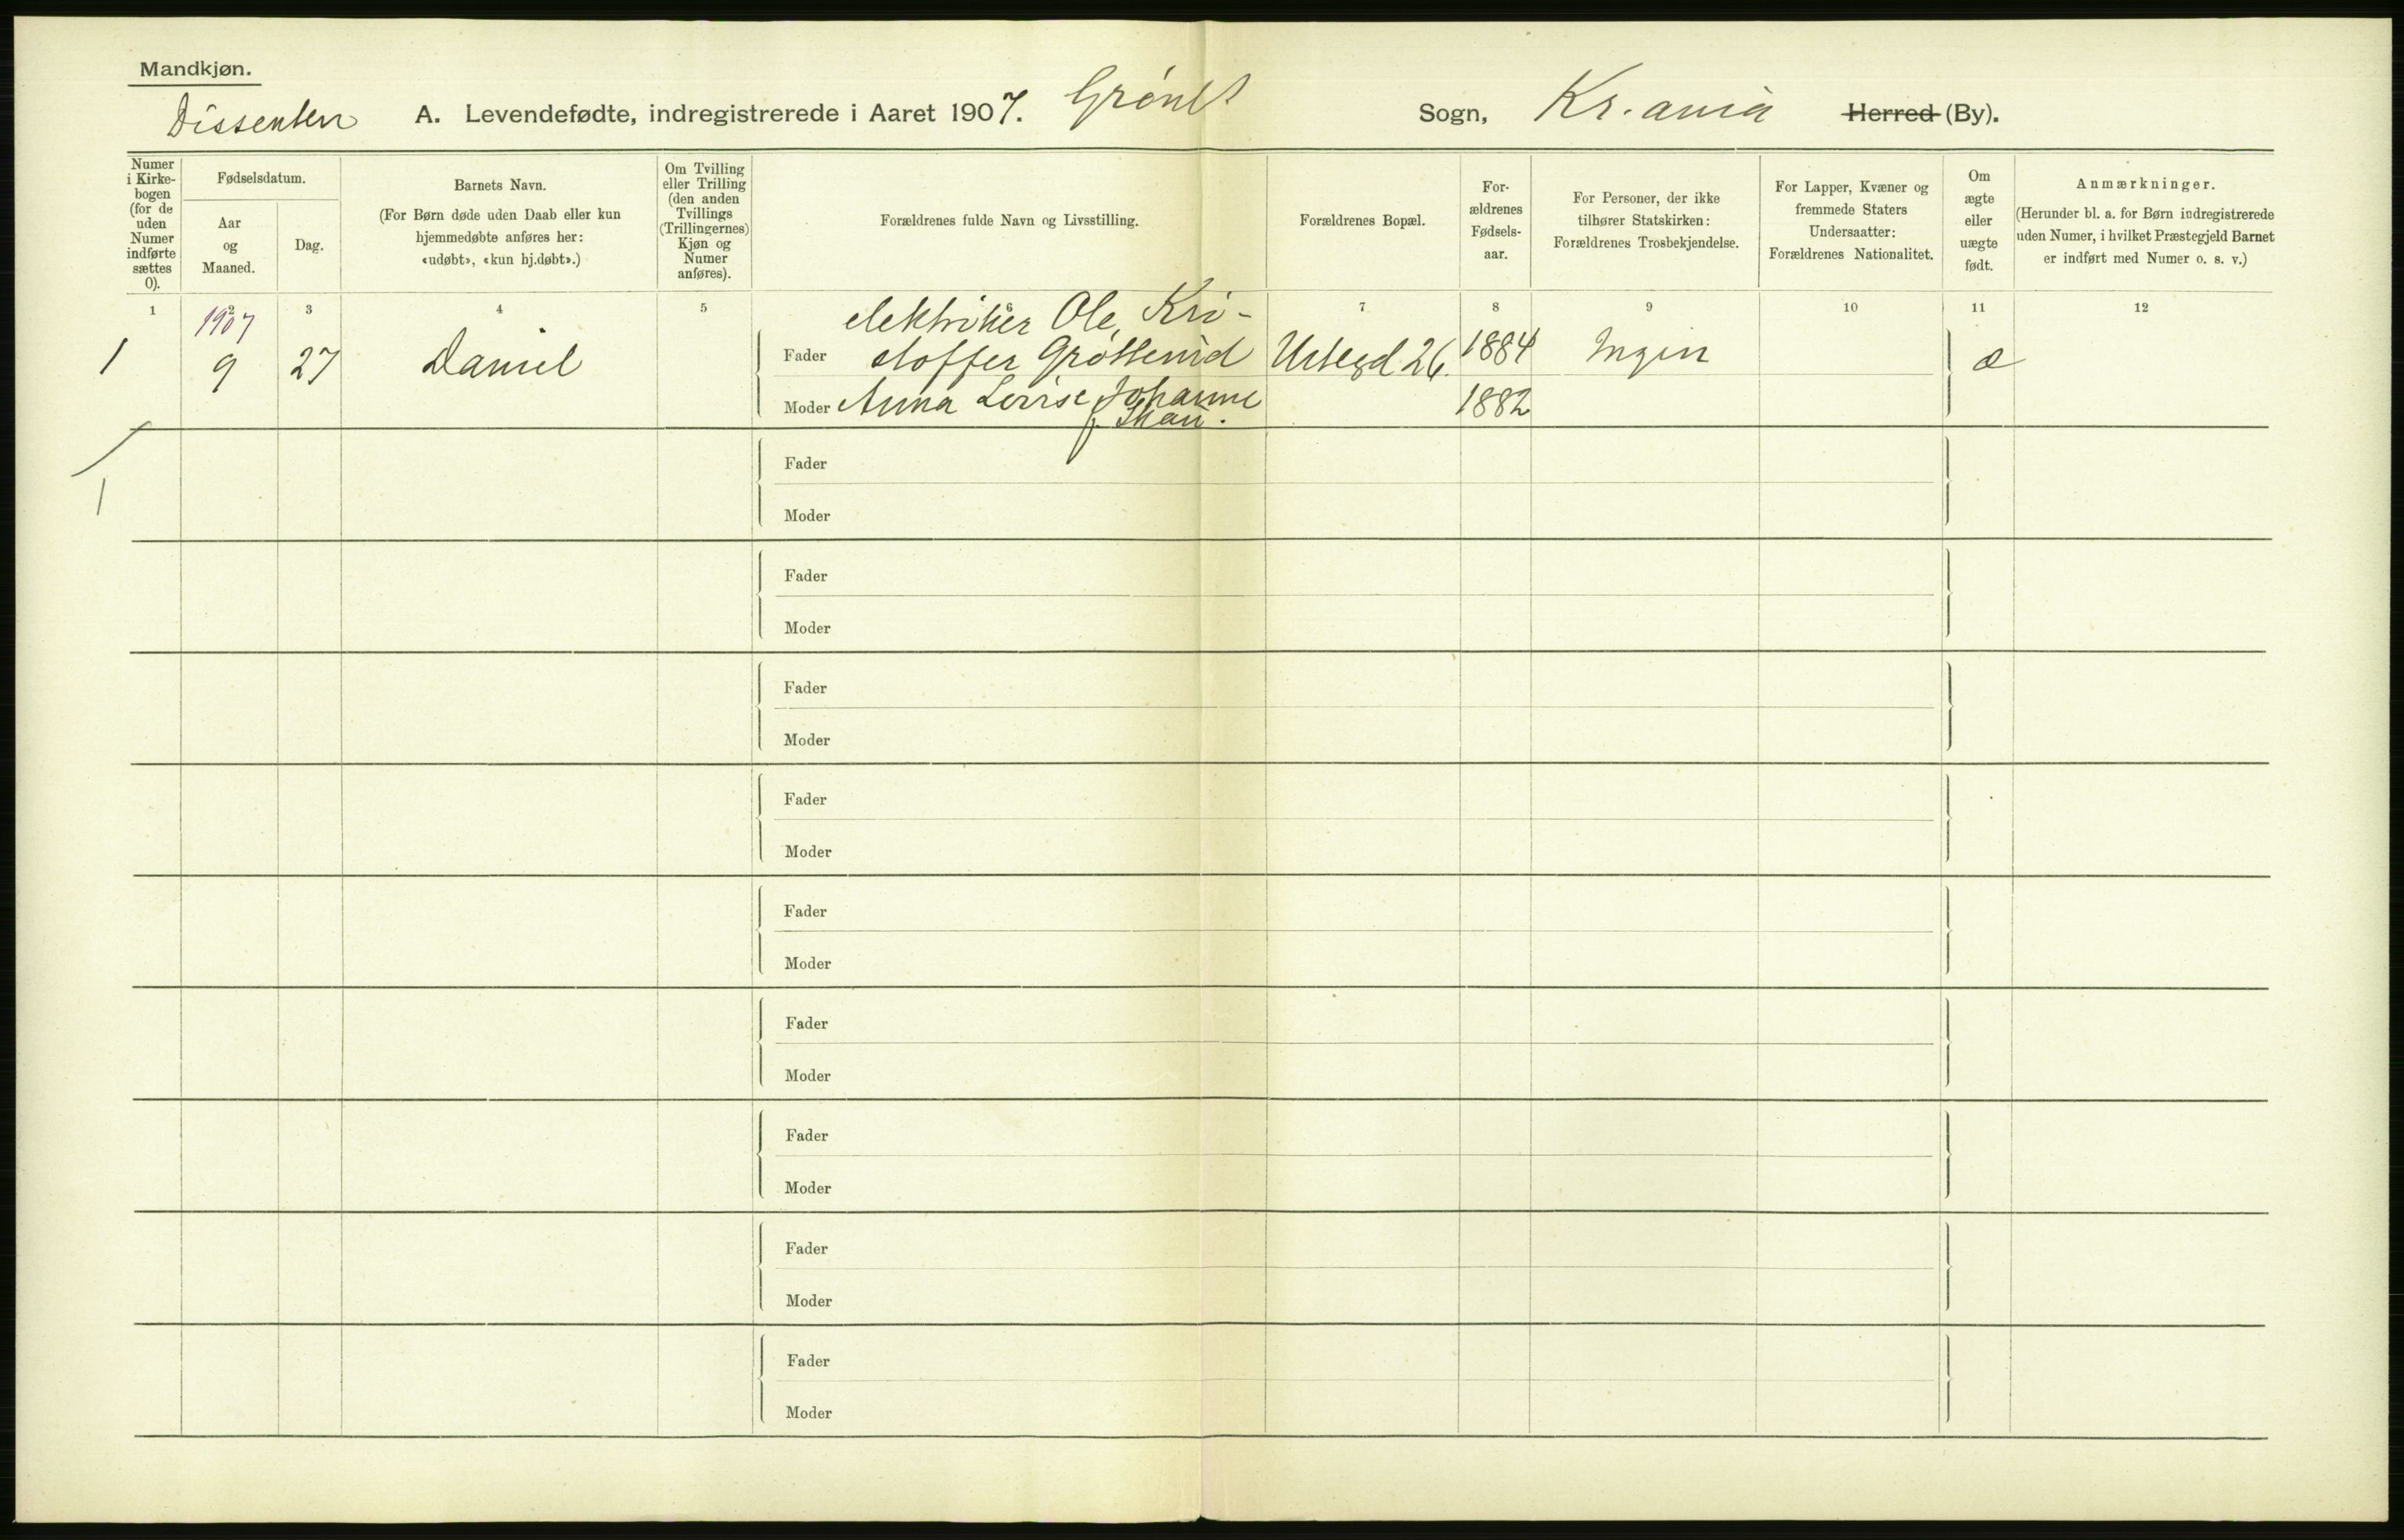 Mandkjøn.
Dissentere A. Levendefødte, indregistrerede i Aaret 1907. Grønl Sogn, Kr.ania Herred (By).
Numer i Kirkebogen (for de uden Numer indførte sættes 0).
Fødselsdatum.
Aar og Maaned.
Dag.
Barnets Navn.
(For Børn døde uden Daab eller kun
hjemmedøbte anføres her:
«udøbt», «kun hj.døbt».)
Om Tvilling
eller Trilling
(den anden
Tvillings
(Trillingernes)
Kjøn og
Numer
anføres).
Forældrenes fulde Navn og Livsstilling.
Forældrenes Bopæl.
For-
ældrenes
Fødsels-
aar.
For Personer, der ikke
tilhører Statskirken:
Forældrenes Trosbekjendelse.
For Lapper, Kvæner og
fremmede Staters
Undersaatter:
Forældrenes Nationalitet.
Om
ægte
eller
uægte
født.
Anmærkninger.
(Herunder bl. a. for Børn indregistrerede
uden Numer, i hvilket Præstegjeld Barnet
er indført med Numer o. s. v.)
1 2 3 4 5 6 7 8 9 10 11 12
1907
elektriker Ole, Kri-
1 9 27 Daniel Fader stoffer Urtegd 26. 1884 Ingen æ
Moder Anna Lovise Johanne 1882
f. Skau.
1
Fader
Moder
Fader
Moder
Fader
Moder
Fader
Moder
Fader
Moder
Fader
Moder
Fader
Moder
Fader
Moder
Fader
Moder